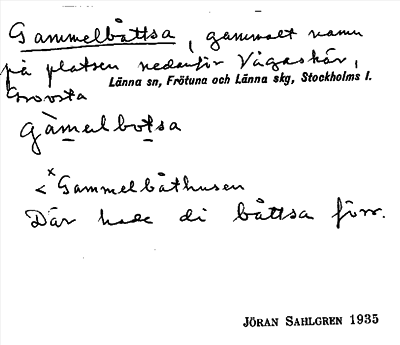 Gammelbåttsa, gammalt namn
på platsen nedanför Vågaskär,
Länna sn, Frötuna och Länna skg, Stockholms l.
Grovsta
gàmεlbotsa
< ˣGammelbåthusen
Där hade di båttsa förr.
JÖRAN SAHLGREN 1935